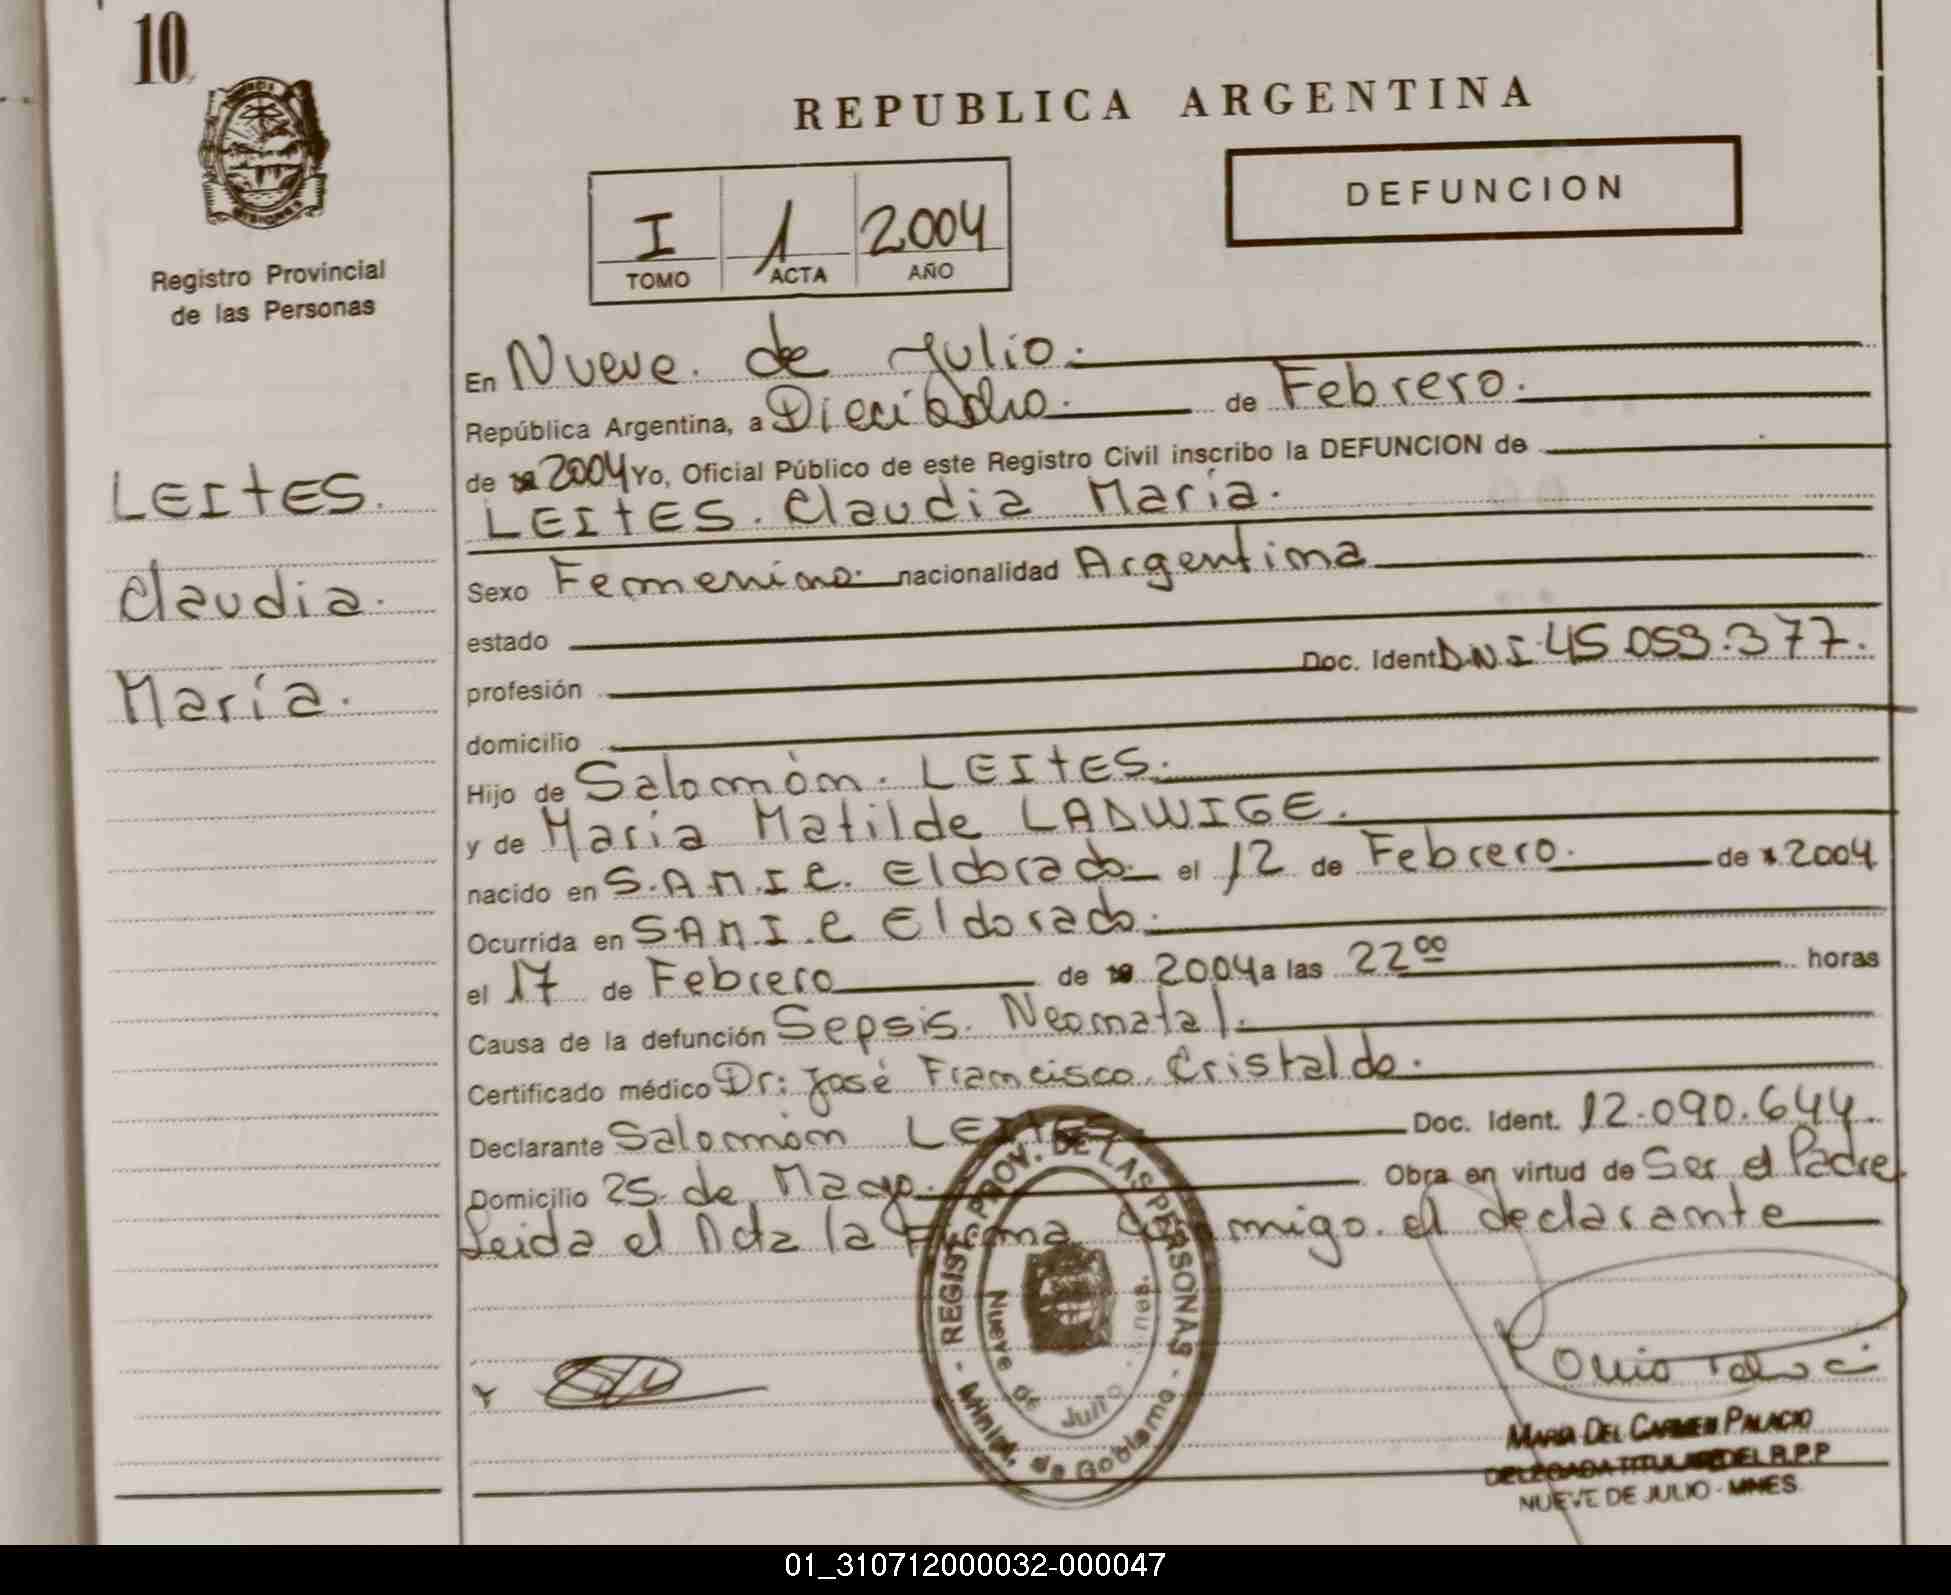 10
Registro Provincial
de las Personas
LEItES.
Claudia.
María.
REPUBLICA ARGENTINA
I 1 2004
TOMO ACTA AÑO
DEFUNCION
En Nueve. de Julio.
República Argentina, a Dieciocho. de Febrero.
de 2004 Yo, Oficial Público de este Registro Civil inscribo la DEFUNCION de
LEItES. Claudia María.
Sexo Femenino. nacionalidad Argentina
estado
profesión Doc. Ident DNI 45.053.377.
domicilio
Hijo de Salomón. LEItES.
y de María Matilde LADWIGE.
nacido en S.A.M.I.C. Eldorado. el 12 de Febrero. de 2004
Ocurrida en S.A.M.I.C Eldorado.
el 17 de Febrero de 2004 a las 22 00 horas
Causa de la defunción Sepsis. Neonatal.
Certificado médico Dr: José Francisco. Cristaldo.
Declarante Salomón LEItES Doc. Ident. 12.090.644.
Domicilio 25 de Mayo. Obra en virtud de Ser el Padre.
Leida el Acta la Firma Conmigo. el declarante
REGIST. PROV. DE LAS PERSONAS
Minist. de Gobierno
Nueve de Julio
MARIA DEL CARMEN PALACIO
DELEGADA TITULAR DEL R.P.P
NUEVE DE JULIO - MNES.
01_310712000032-000047